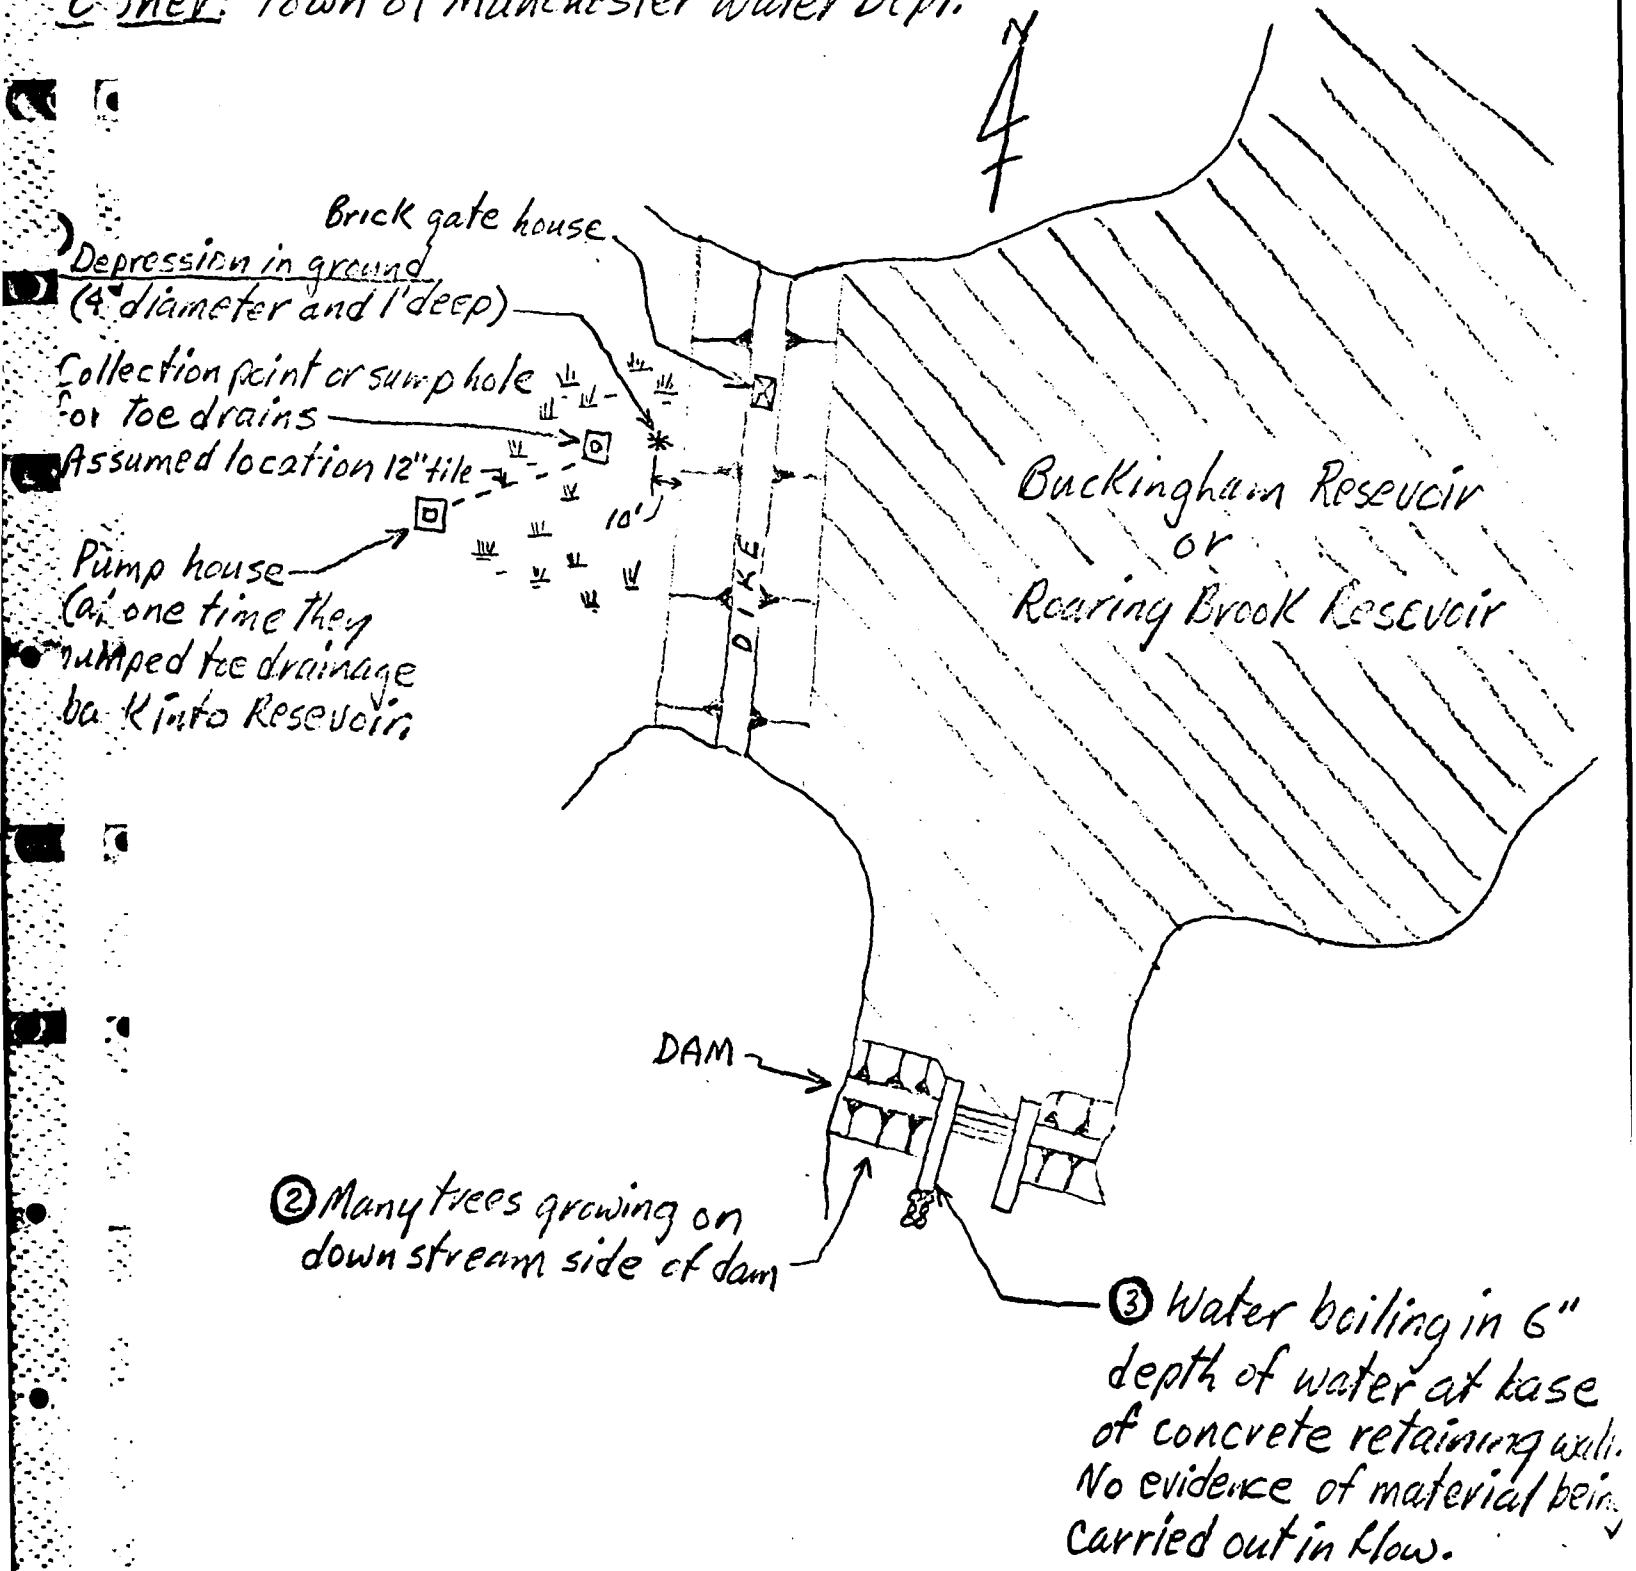 Owner: Town of Manchester Water Dept.
N
Brick gate house
Depression in ground
(4' diameter and 1' deep)
Collection point or sump hole
for toe drains
Assumed location 12" tile
10'
Pump house
(at one time they
pumped toe drainage
back into Resevoir.
DIKE
Buckingham Resevoir
or
Roaring Brook Resevoir
DAM
② Many trees growing on
downstream side of dam
③ Water boiling in 6"
depth of water at base
of concrete retaining wall.
No evidence of material being
carried out in flow.